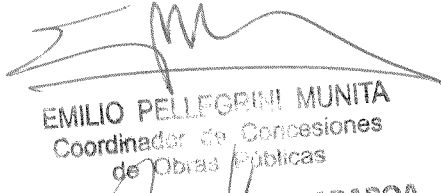 EMILIO PELLEGRINI MUNITA
Coordinador de Concesiones
de Obras Públicas